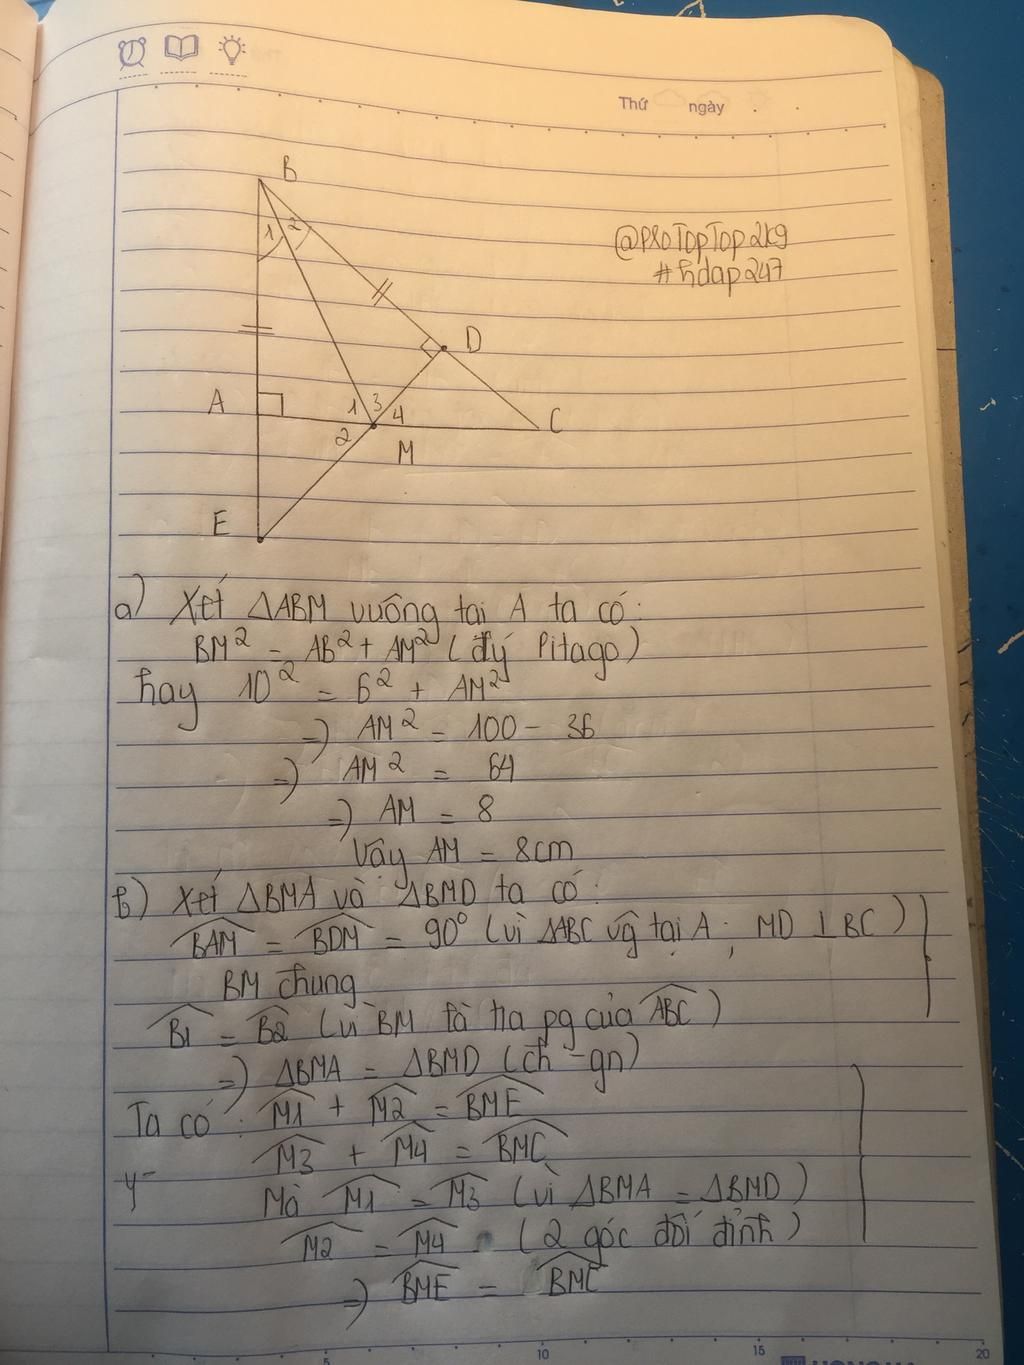 Thứ ngày
B
1 2
@PROTopTop2k9
#hdap247
D
A
1 3 4
C
2
M
E
a) Xét ΔABM vuông tại A ta có:
BM² = AB² + AM² (đlý Pitago)
hay 10² = 6² + AM²
=) AM² = 100 - 36
=) AM² = 64
=) AM = 8
Vậy AM = 8cm
b) Xét ΔBMA và ΔBMD ta có:
BAM = BDM = 90° (vì ΔABC vg tại A ; MD ⊥ BC)
BM chung
B1 = B2 (vì BM là tia pg của ABC)
=) ΔBMA = ΔBMD (ch - gn)
Ta có: M1 + M2 = BME
M3 + M4 = BMC
Mà M1 = M3 (vì ΔBMA = ΔBMD)
M2 = M4 (2 góc đối đỉnh)
=) BME = BMC
5 10 15 20